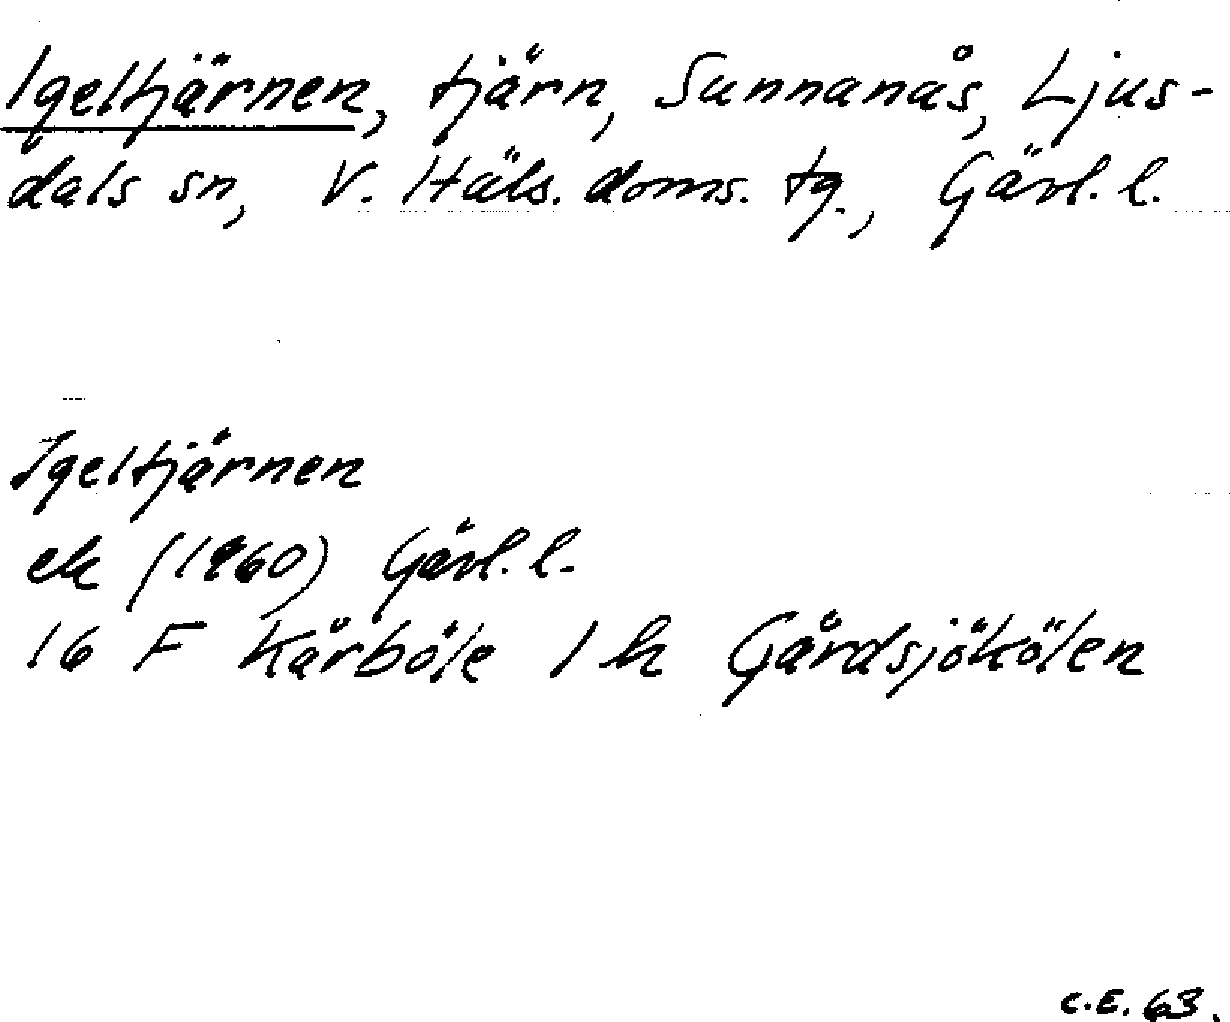 Igeltjärnen, tjärn, Sunnanås, Ljus-
dals sn, V. Häls. doms. tg., Gävl. l.
Igeltjärnen
ek (1960) Gävl. l.
16 F Kårböle 1 h Gårdsjökölen
C.E. 63.